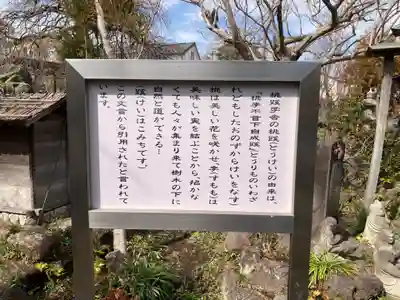 桃蹊学舎の桃蹊(とうけい)の由来は、
「桃李不言下自成蹊」(とうりものいわざ
れどもしたおのずからけいをなす)
桃は美しい花を咲かせ、李(すもも)は
美味しい実を結ぶことから、招かな
くても人々が集まり来て樹木の下に
自然と道ができる…
「蹊(けい)はこみちです。」
この文言から引用されたと言われて
います。